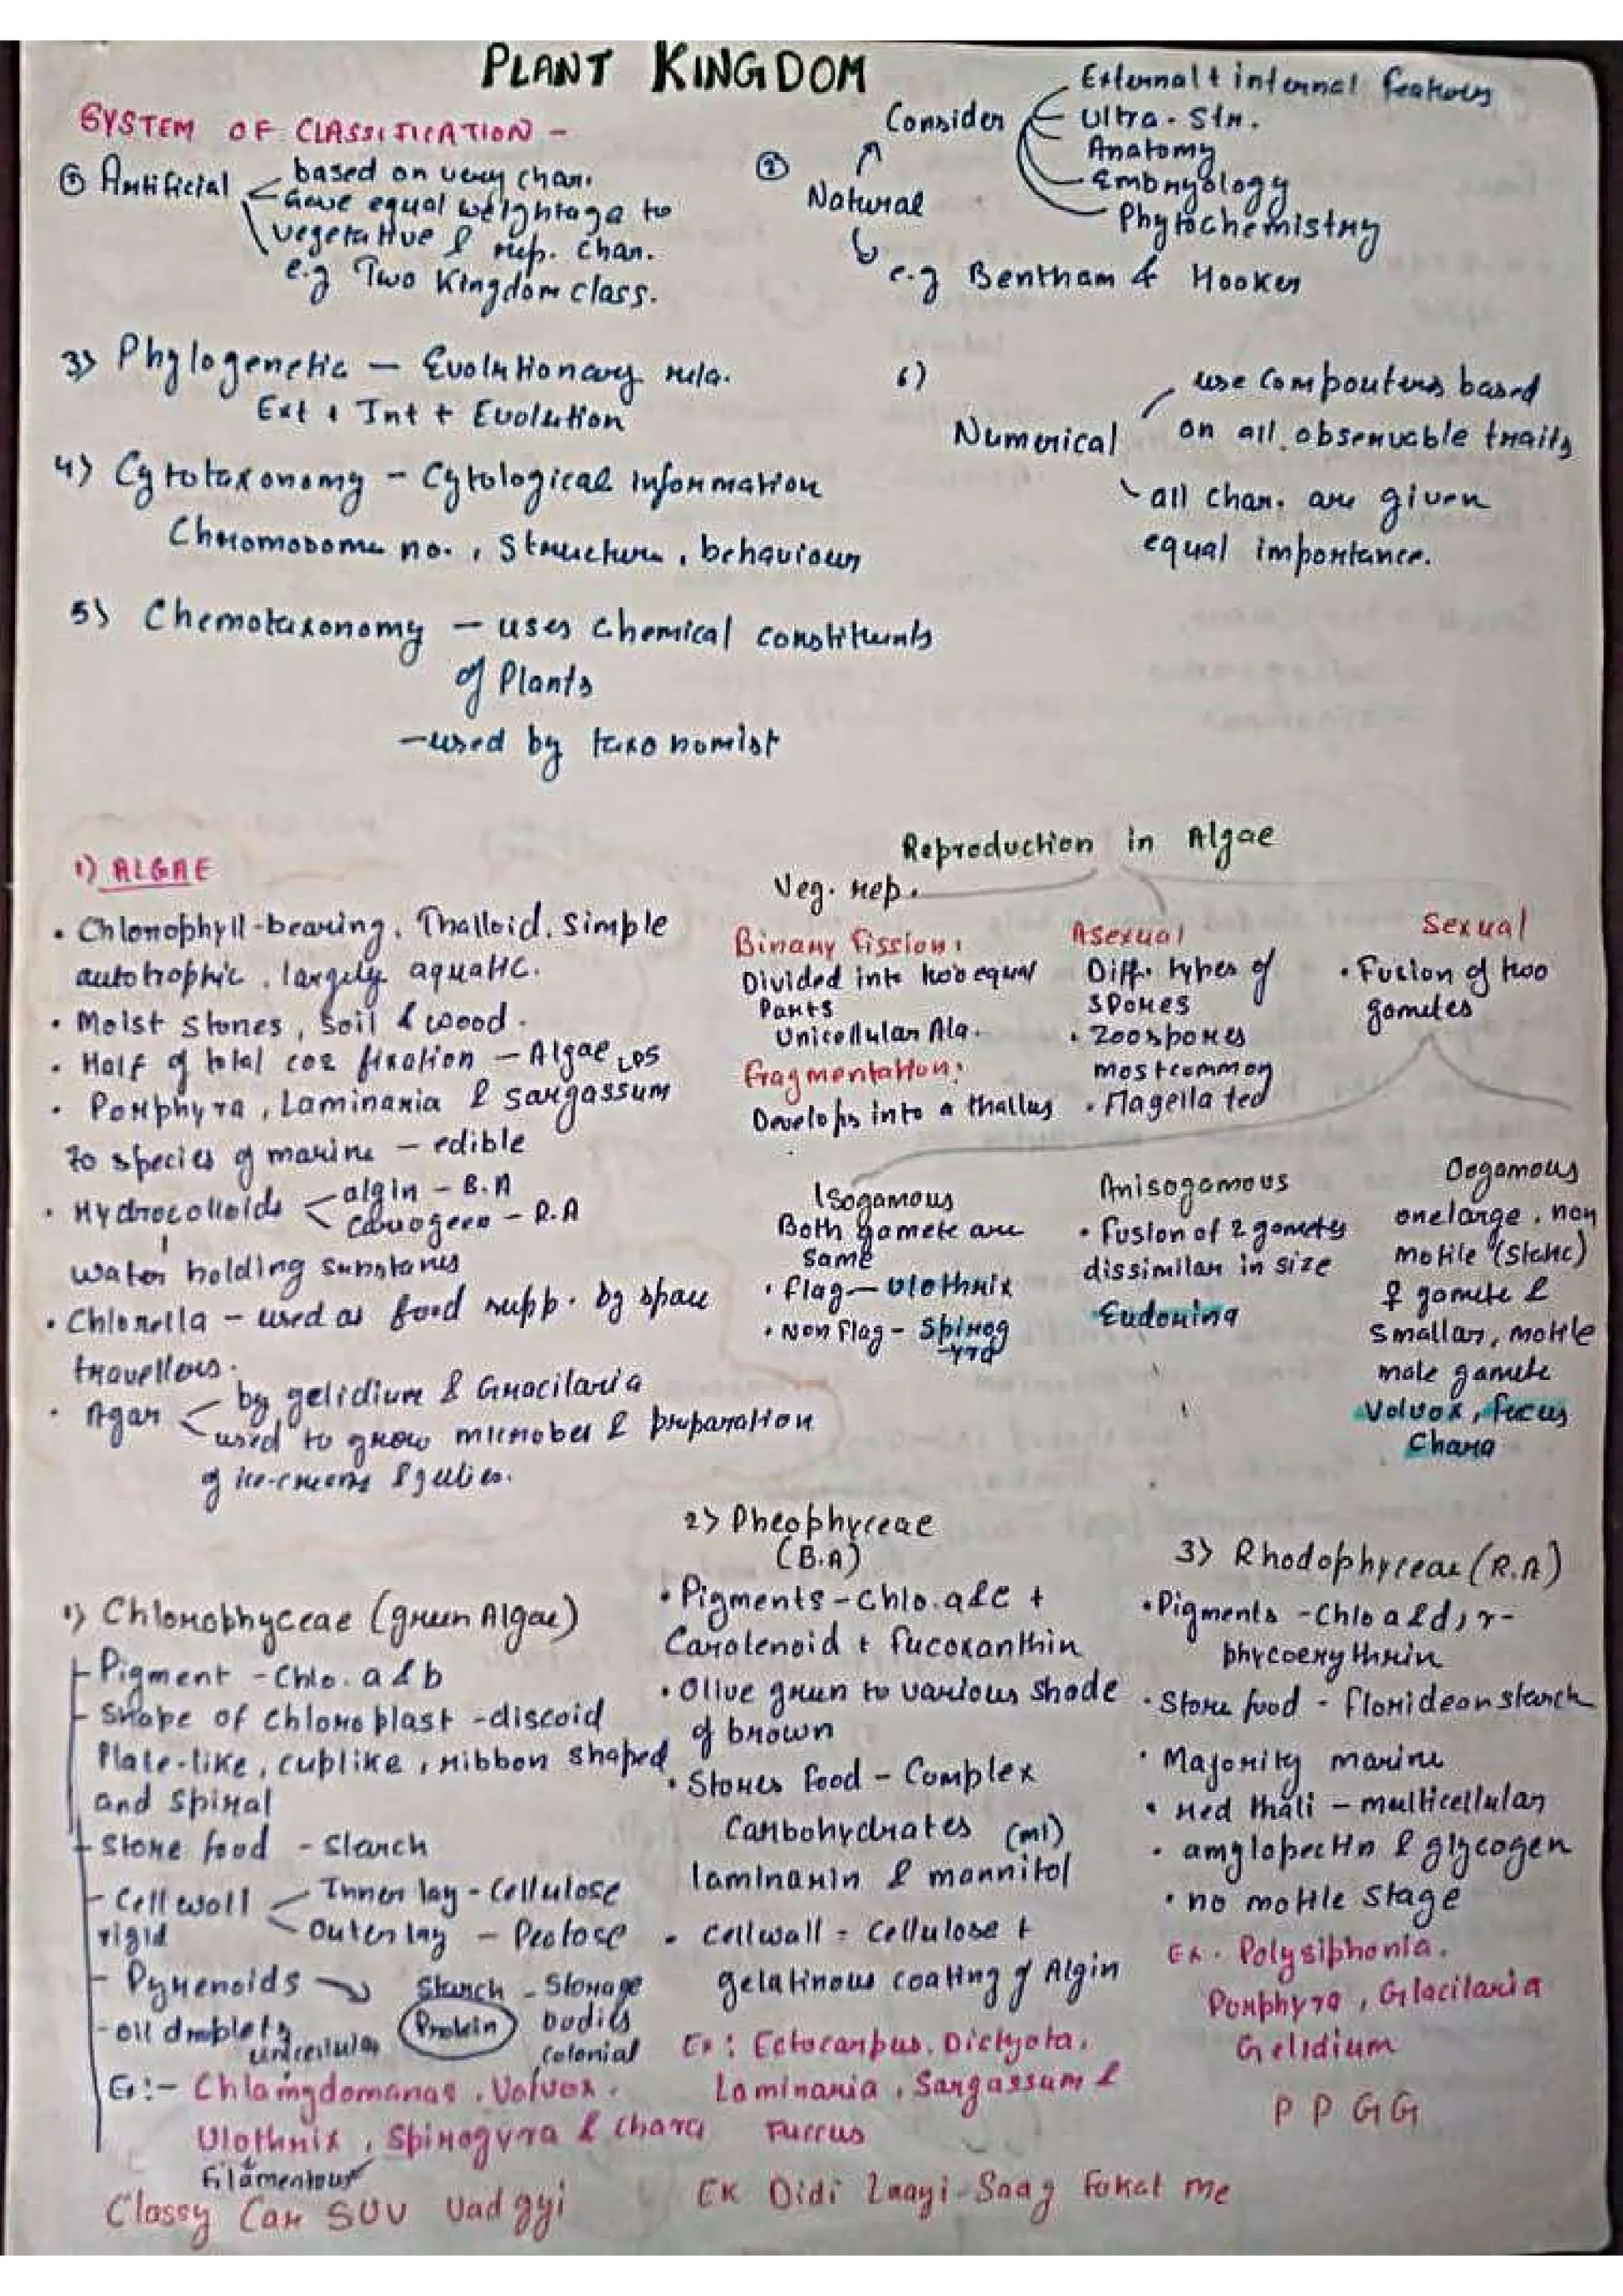 PLANT KINGDOM
SYSTEM OF CLASSIFICATION -
Artificial
based on veg chars.
Gave equal weightage to
vegetative & rep. char.
e.g Two Kingdom class.
②
Natural
Consider
External + internal features
Ultra. Str.
Anatomy
Embryology
Phytochemistry
e.g Bentham & Hooker
3) Phylogenetic - Evolutionary rela.
Ext + Int + Evolution
4) Cytotaxonomy - Cytological information
Chromosome no., Structure, behaviour
5) Chemotaxonomy - uses chemical constituents
of Plants
- used by taxonomist
6)
Numerical
use compouters based
on all observable traits
all char. are given
equal importance.
1) ALGAE
• Chlorophyll-bearing, Thalloid, simple
autotrophic, largely aquatic.
• Moist stones, soil & wood.
• Half of total CO2 fixation - Algae
• Porphyra, Laminaria & sargassum
70 species of marine - edible
• Hydrocolloids
algin - B.A
- R.A
water holding substances
• Chlorella - used as food supp. by space
travellers.
• Agar
by gelidium & Gracilaria
used to grow microbes & preparation
of ice-creams & jellies.
Reproduction in Algae
Veg. rep.
Binary fission:
Divided into two equal
Parts
Unicellular Alg.
Fragmentation:
Develops into a thallus
Asexual
Diff. types of
spores
• Zoospores
most common
• Flagellated
Sexual
• Fusion of two
gametes
Isogamous
Both gamete are
same
• flag - Ulothrix
• Non flag - Spirog
yra
Anisogamous
• fusion of 2 gametes
dissimilar in size
Eudorina
Oogamous
one large, non
motile (static)
♀ gamete &
smaller, motile
male gamete
Volvox, fucus
Chara
1) Chlorophyceae (green Algae)
Pigment - Chlo. a & b
Shape of chloroplast - discoid
Plate-like, cuplike, ribbon shaped
and spiral
Store food - Starch
Cell wall
rigid
Inner lay - Cellulose
Outer lay - Pectose
Pyrenoids
Starch - Storage
Protein bodies
- oil droplets
unicellular
colonial
Ex:- Chlamydomanas, Volvox,
Ulothrix, Spirogyra & chara
filamentous
Classy Car SUV
2) Pheophyceae
(B.A)
• Pigments - Chlo. a & c +
Carotenoid + fucoxanthin
• Olive green to various shade
of brown
• Stores food - Complex
Carbohydrates (ml)
laminarin & mannitol
• Cellwall = Cellulose +
gelatinous coating of Algin
Ex: Ectocarpus, Dictyota,
Laminaria, Sargassum &
Fuccus
EK Didi Laayi Saag Fokat me
3) Rhodophyceae (R.A)
• Pigments - Chlo a & d, r-
phycoerythrin
• Store food - floridean starch
• Majority marine
• red thali - multicellular
• amylopectin & glycogen
• no motile stage
Ex. Polysiphonia,
Porphyra, Glacilaria
Gelidium
P P G G